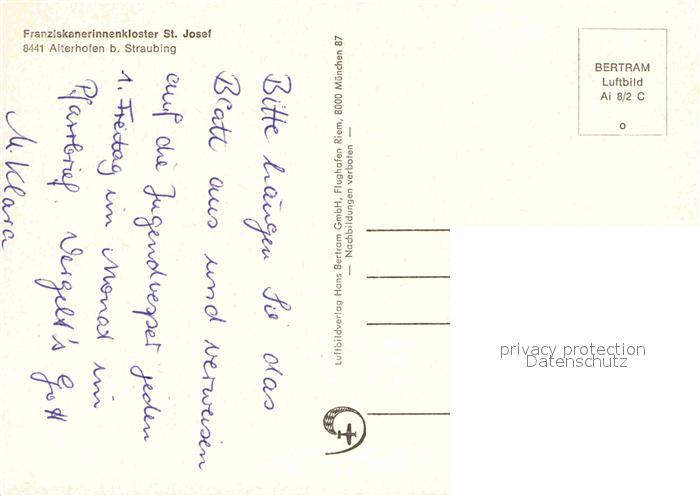 Franziskanerinnenkloster St. Josef
8441 Aiterhofen b. Straubing
Bitte hängen Sie das
Blatt aus und verweisen
auf die Jugendvesper jeden
1. Freitag im Monat im
Pfarrbrief. Vergelt's Gott
M. Klara
Luftbildverlag Hans Bertram GmbH, Flughafen Riem, 8000 München 87
— Nachbildungen verboten —
BERTRAM
Luftbild
Ai 8/2 C
privacy protection
Datenschutz